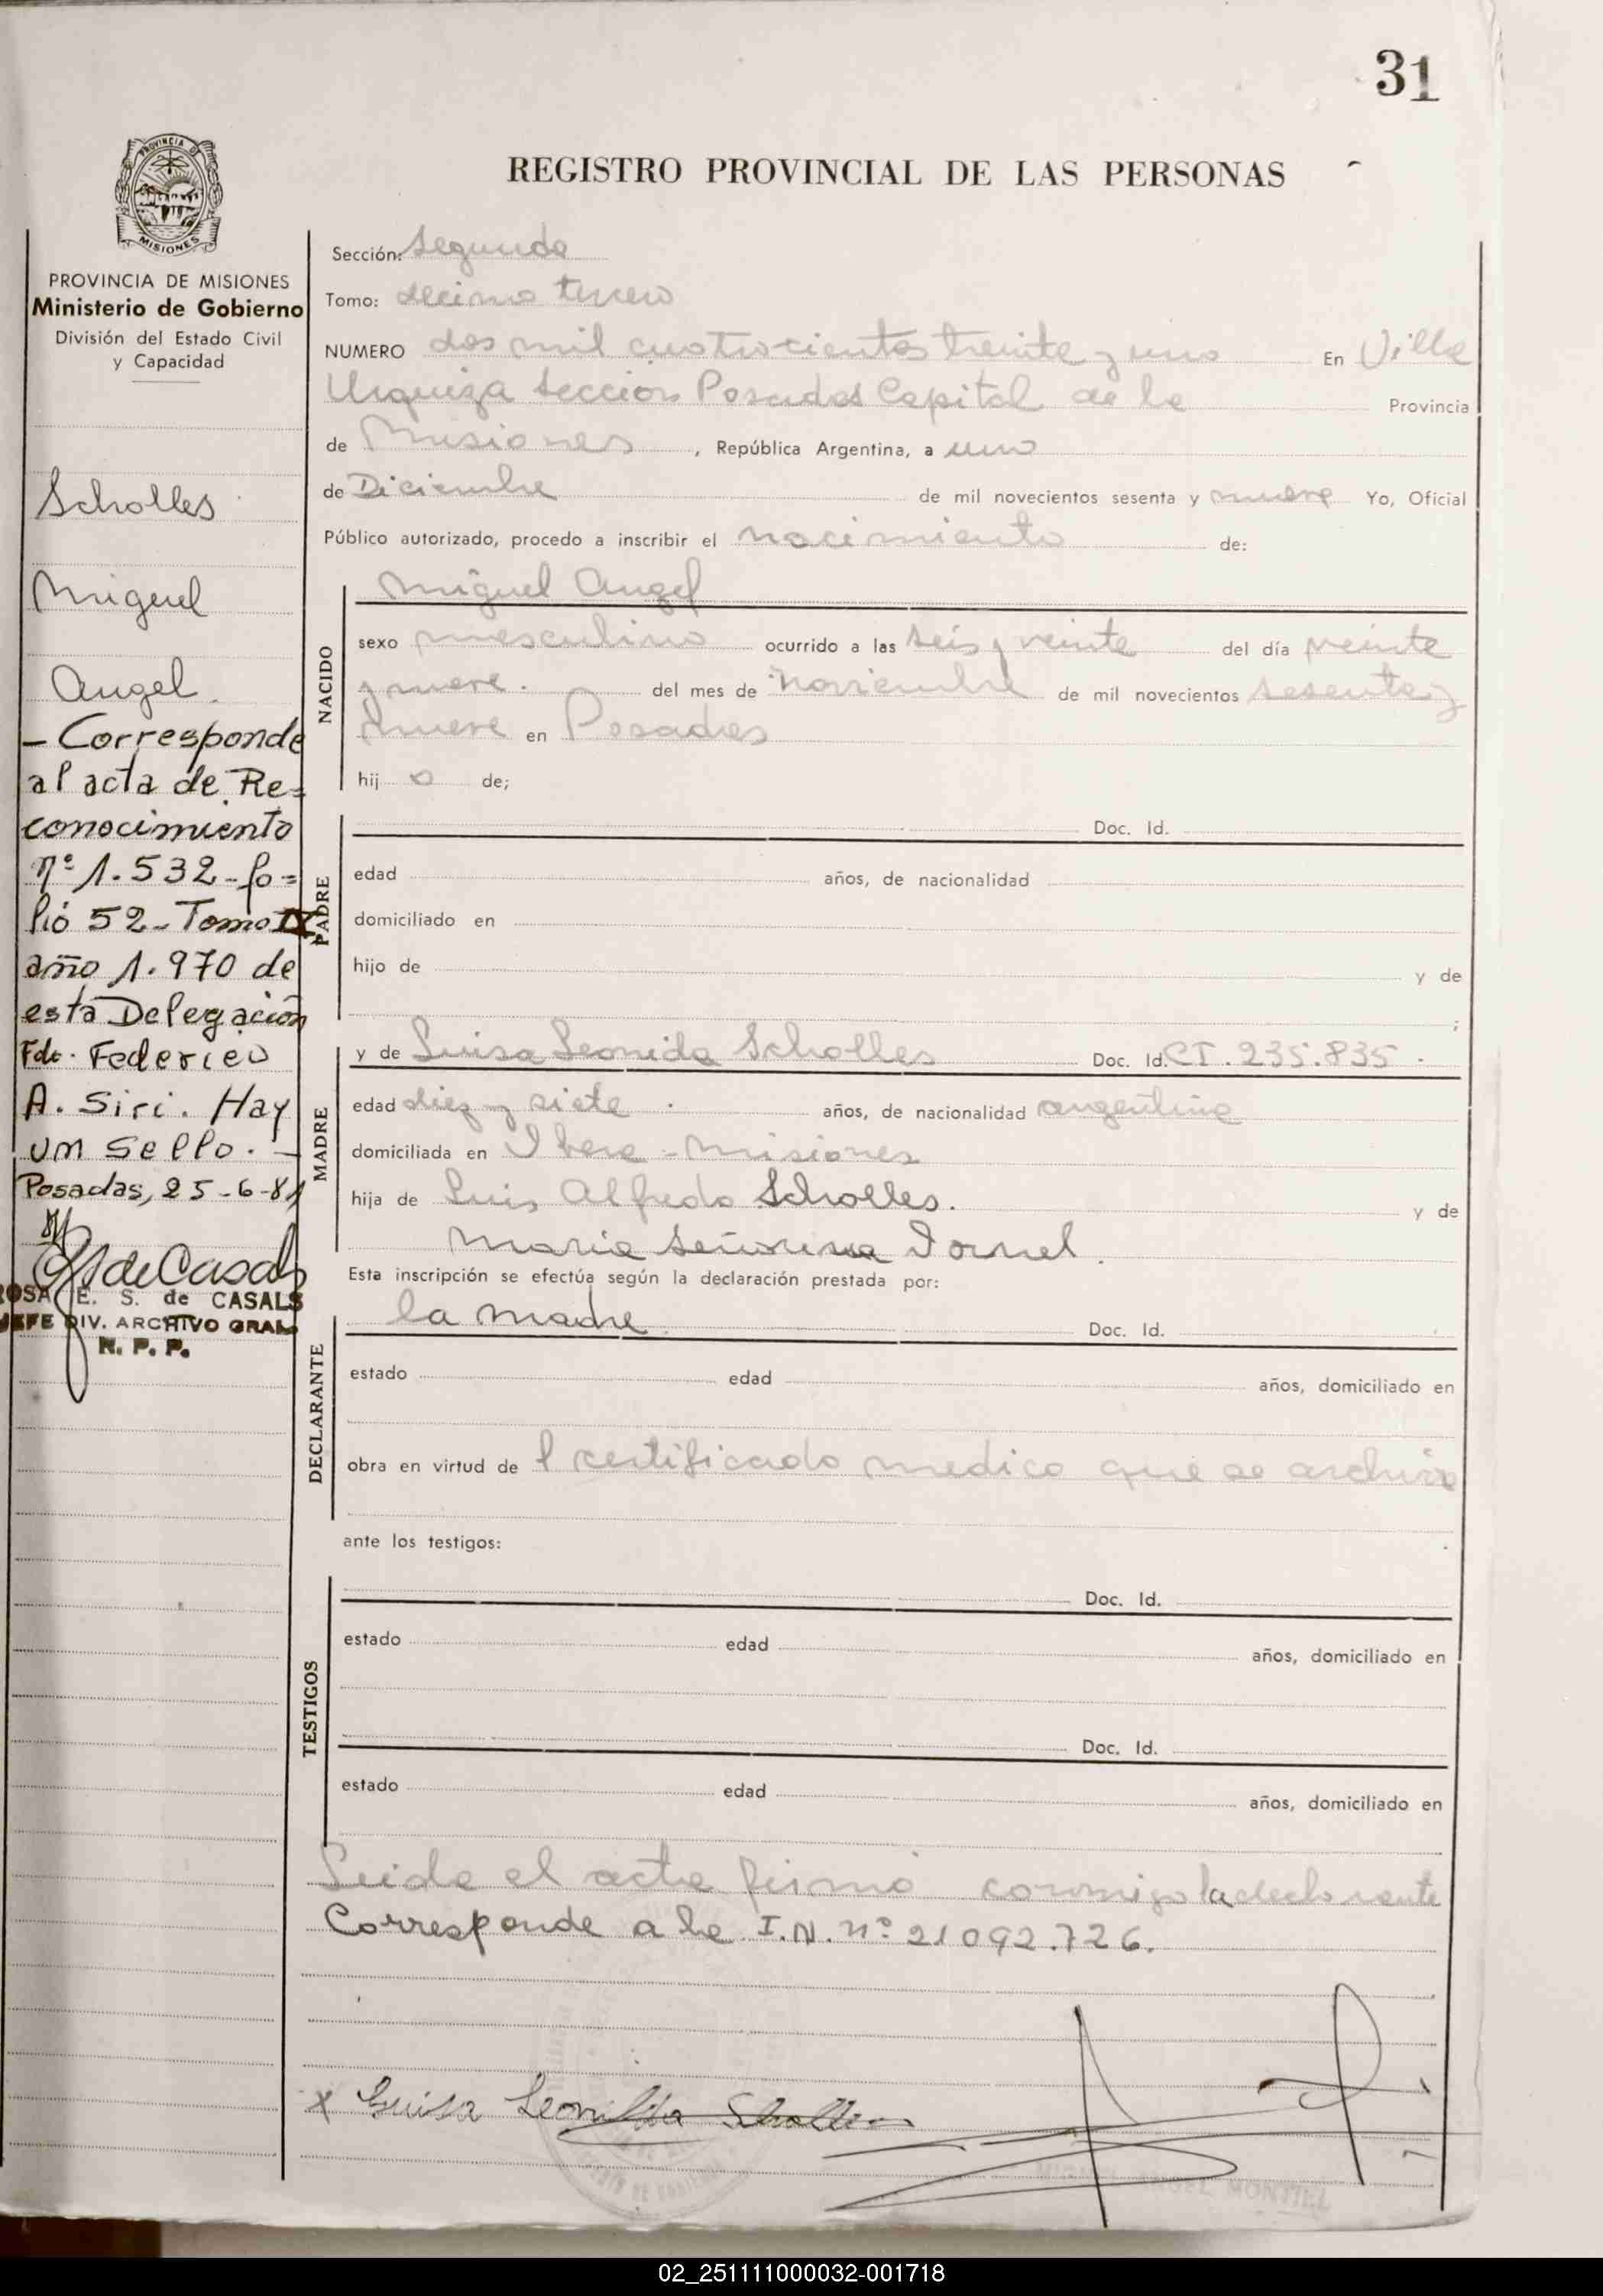 31
PROVINCIA DE
MISIONES
REGISTRO PROVINCIAL DE LAS PERSONAS
PROVINCIA DE MISIONES
Ministerio de Gobierno
División del Estado Civil
y Capacidad
Scholles
Miguel
Angel.
- Corresponde
al acta de Re=
conocimiento
nº 1.532 - fo=
lio 52 - Tomo IV
año 1.970 de
esta Delegación
Fdo. Federico
A. Siri. Hay
un sello. -
Posadas, 25-6-81
RdeCasals
ROSA E. S. de CASALS
JEFE DIV. ARCHIVO GRAL
R. P. P.
Sección: Segunda
Tomo: decimo tercero
NUMERO dos mil cuatrocientos treinta y uno En Villa
Urquiza Sección Posadas Capital de la Provincia
de Misiones, República Argentina, a uno
de Diciembre de mil novecientos sesenta y nueve Yo, Oficial
Público autorizado, procedo a inscribir el nacimiento de:
NACIDO
Miguel Angel
sexo masculino ocurrido a las seis y veinte del día veinte
y nueve. del mes de noviembre de mil novecientos sesenta y
nueve en Posadas
hijo de;
PADRE
Doc. Id.
edad años, de nacionalidad
domiciliado en
hijo de y de
;
MADRE
y de Luisa Leonida Scholles Doc. Id. CI. 235.835.
edad diez y siete. años, de nacionalidad argentina
domiciliada en Ibera - Misiones
hija de Luis Alfredo Scholles. y de
Maria Señorina Dornel.
Esta inscripción se efectúa según la declaración prestada por:
DECLARANTE
la madre Doc. Id.
estado edad años, domiciliado en
obra en virtud de l certificado medico que se archiva
ante los testigos:
TESTIGOS
Doc. Id.
estado edad años, domiciliado en
Doc. Id.
estado edad años, domiciliado en
Leida el acta firmó conmigo la declarante
Corresponde a la I.N. nº 21092.726.
x Luisa Leonilda Scholles
MONTIEL
02_251111000032-001718